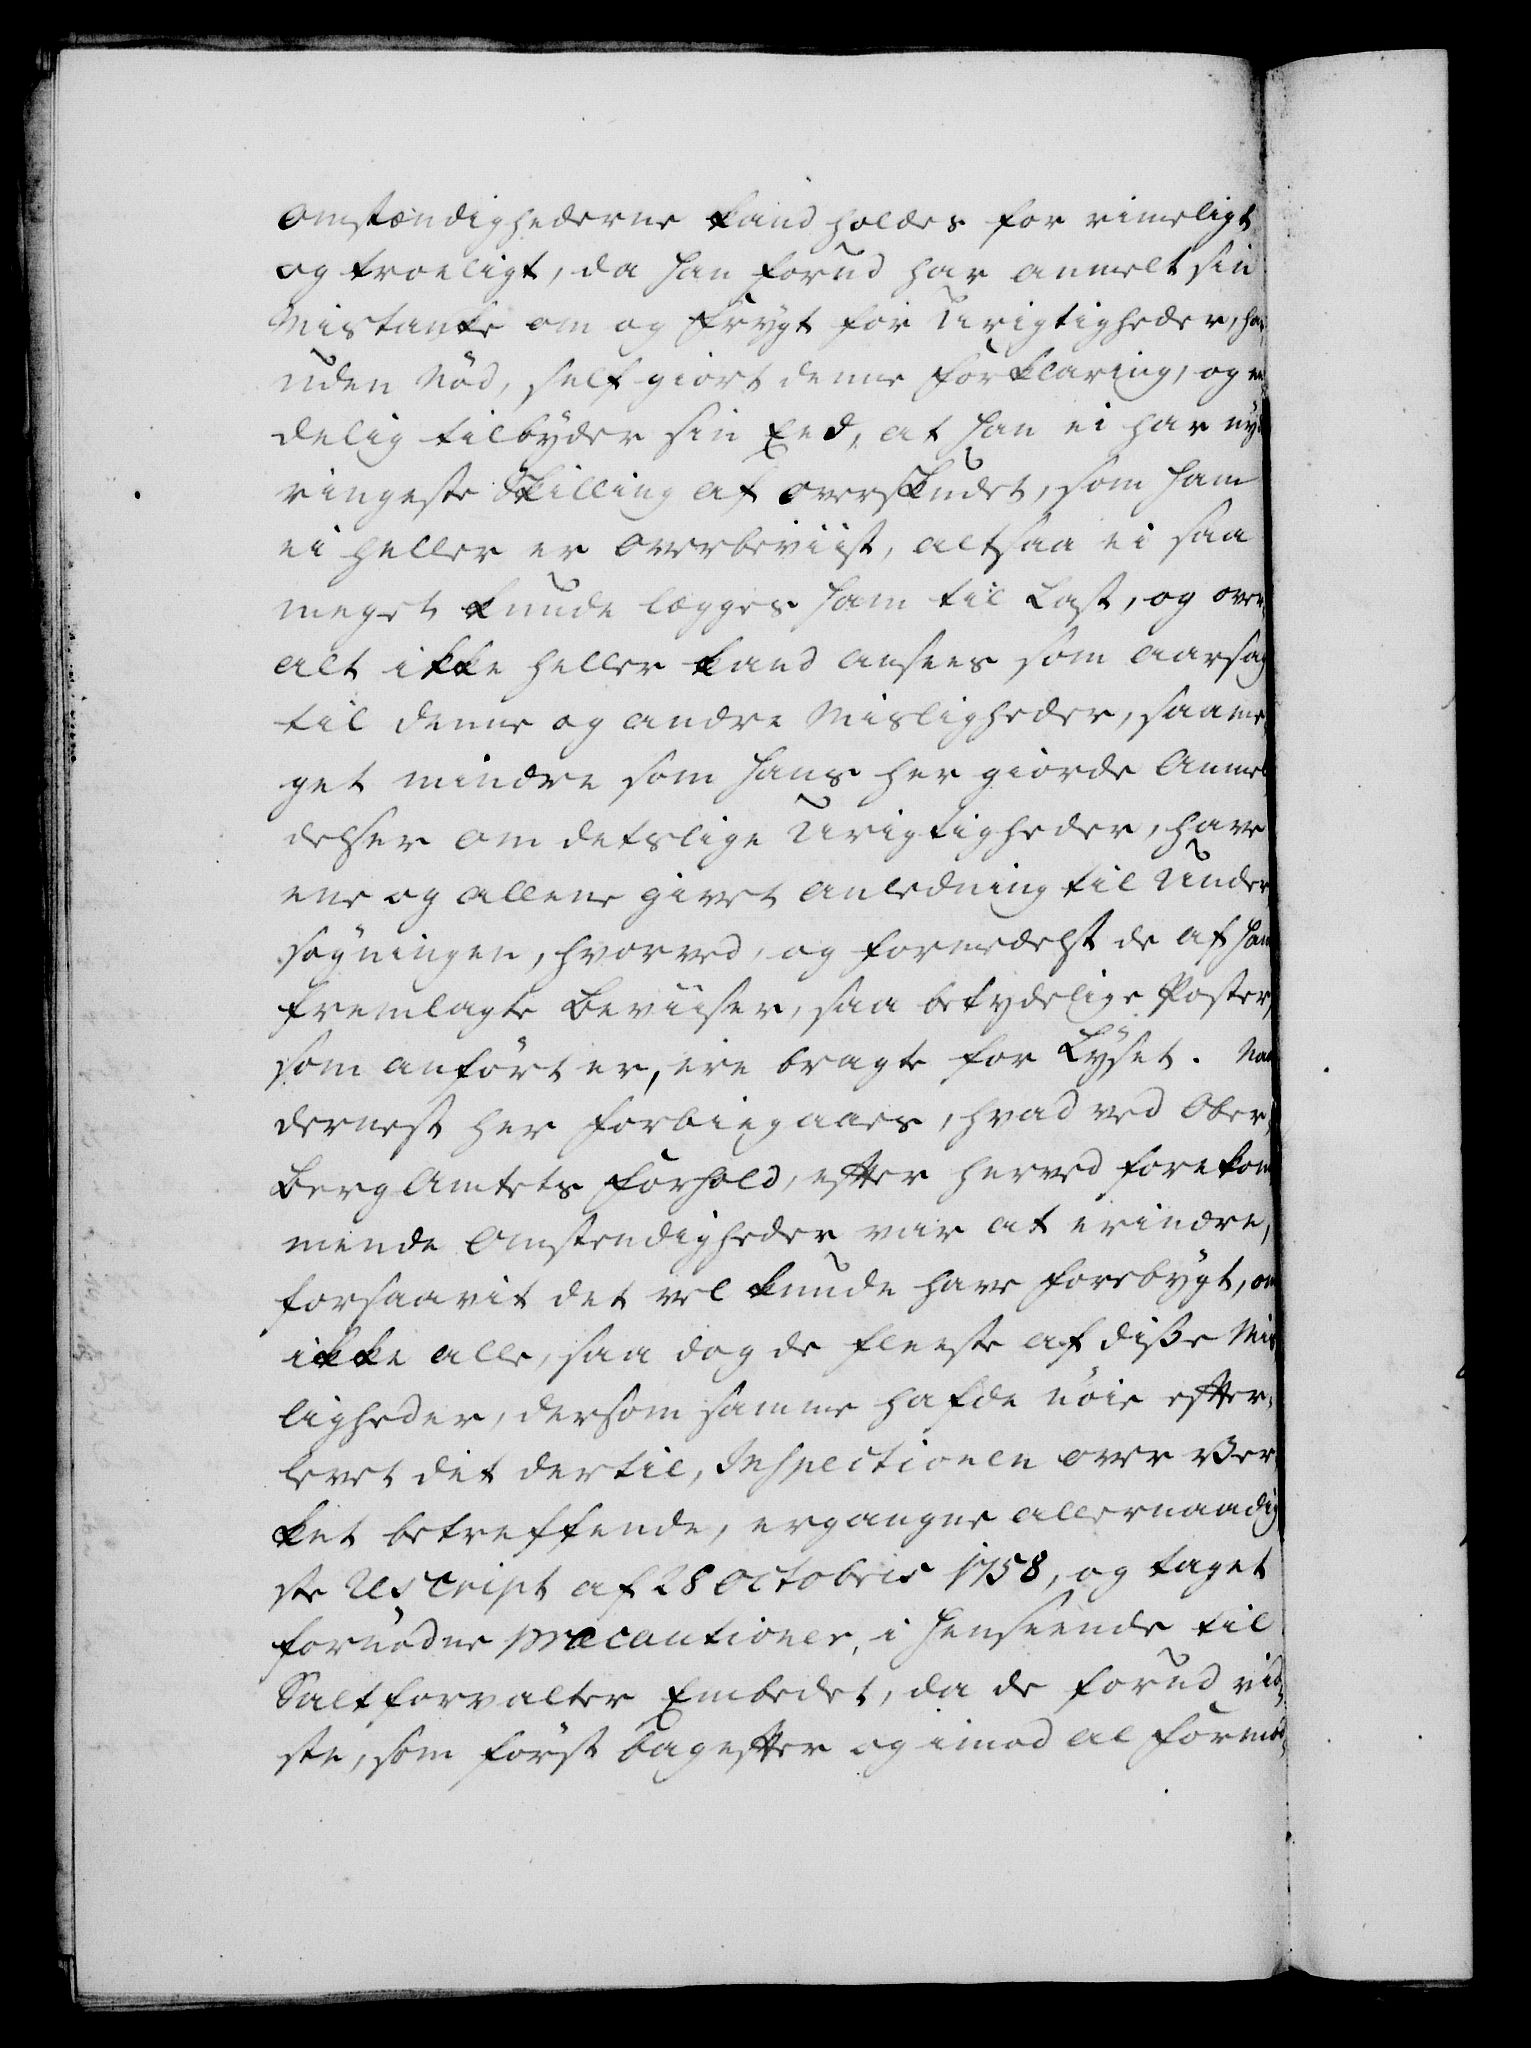 Omstændighederne kand holdes for rimeligt
og troeligt, da han forud har anmelt sin
Mistanke om og Frygt for Urigtigheder, har
uden Nød, self giort denne Forklaring, og en
delig tilbyder sin Eed, at han ei har nydt
ringeste Skilling af Overskudet, som ham
ei heller er overbeviist, altsaa ei saa
meget kunde lægges ham til Last, og over,
alt ikke heller kand ansees som Aarsag
til denne og andre Misligheder, saame,
get mindre som hans her giorde Anmel,
delser om detslige Urigtigheder, have
ene og allene givet Anledning til Under,
søgningen, hvorved, og formedelst de af ham
fremlagte Beviiser, saa betydelige Poster,
som anført er, ere bragte for Lyset.
dernest her forbiegaaes, hvad ved Ober,
Berg Amtets Forhold, efter herved forekom
mende Omstendigheder var at erindre,
forsaavit det vel kunde have forebygt, om
ikke alle, saa dog de fleeste af disse Mis
ligheder, dersom samme hafde nøie efter,
levet det dertil, Inspectionen over Ver,
ket betreffende, ergangne allernaadig
ste Rescript af 28 Octobris 1758, og taget
fornødne Præcautioner, i Henseende til
Saltforvalter Embedet, da de forud vid,
ste, som først bagefter og imod al Formod,